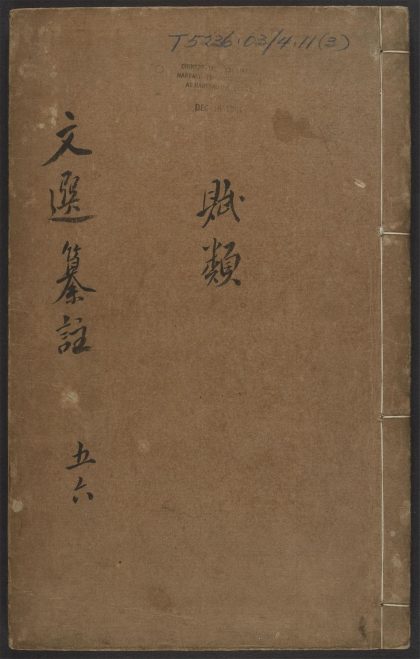 T5236.03/4.11(3)
DEC
賦類
文選纂註 五六